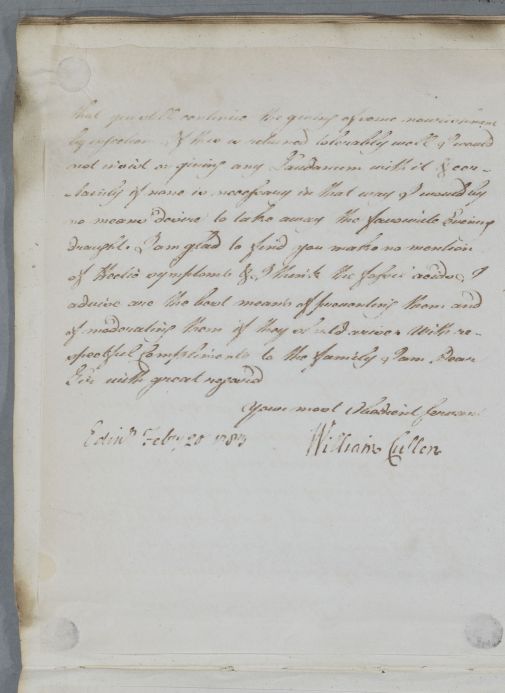 that you still continue the giving of some nourishment
by injection. If this is retained tolerably well I would
not insist on giving any Laudanum with it & cer-
tainly if none is necessary in that way I would by
no means desire to take away the favourite Evening
draught. I am glad to find you make no mention
of Hectic symptoms & I think the acids I
advise are the best means of preventing them and
of moderating them if they should arise. With re-
spectful Compliments to the family I am Dear
Sir with great regard
Your most Obedient Servant
Edinr. Febry 20 William Cullen